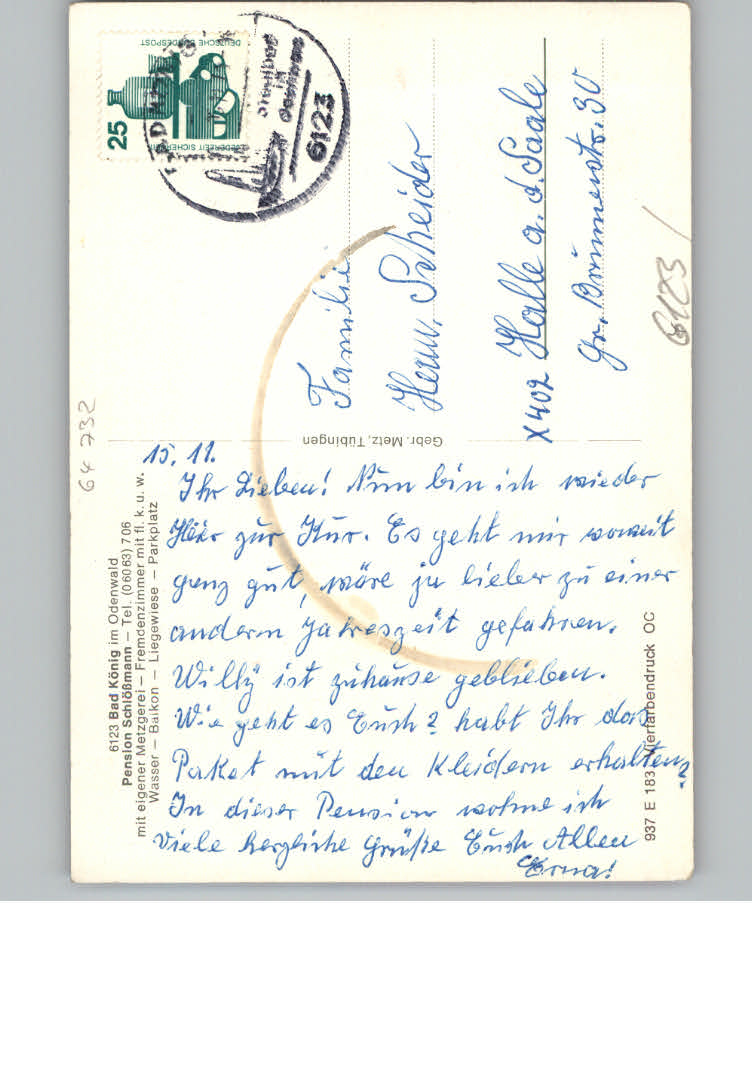 6123 Bad König im Odenwald
Pension Schlößmann – Tel. (06063) 706
mit eigener Metzgerei – Fremdenzimmer mit fl. k. u. w.
Wasser – Balkon – Liegewiese – Parkplatz
64 732
15. 11.
Ihr Lieben! Nun bin ich wieder
Hier zur Kur. Es geht mir soweit
ganz gut, wäre ja lieber zu einer
andern Jahreszeit gefahren.
Willy ist zuhause geblieben.
Wie geht es Euch? habt Ihr das
Paket mit den Kleidern erhalten?
In dieser Pension wohne ich
Viele herzliche Grüße Euch Allen
Erna!
937 E 183 Vierfarbendruck OC
Gebr. Metz, Tübingen
DEUTSCHE BUNDESPOST
JEDERZEIT SICHERHEIT
25
BAD KÖNIG
im
Odenwald
6123
Familie
Herm. Scheider
X402 Halle a. d. Saale
Gr. Brunnenstr. 30
6123